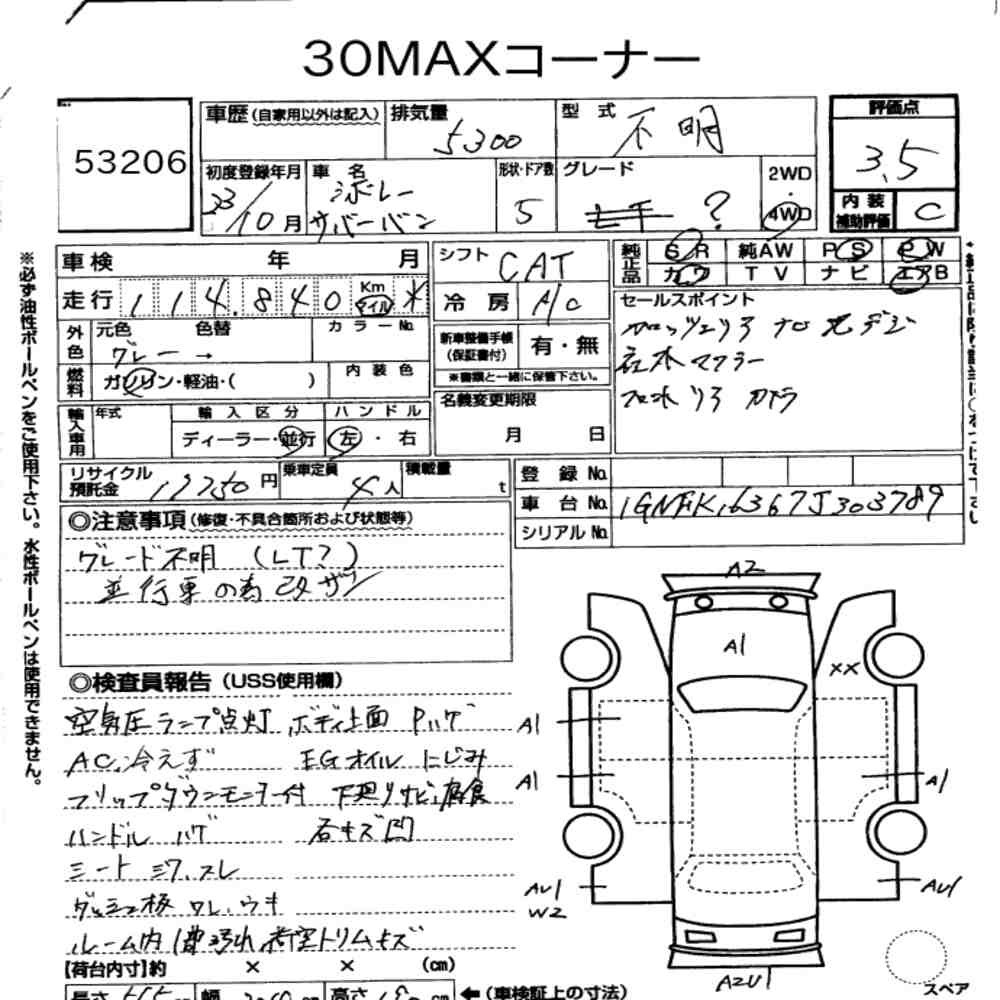 30MAXコーナー
53206
車歴 (自家用以外は記入)
排気量
5300
型 式
不明
評価点
3.5
内装補助評価
C
初度登録年月
23/10月
車 名
シボレー
サバーバン
形状・ドア数
5
グレード
?
2WD
・
4WD
車検 年 月
走行 114,840 Km マイル *
外色
元色 色替
グレー →
カラーNo.
燃料
ガソリン・軽油・( )
内装色
輸入車用
年式
輸入区分
ディーラー・並行
ハンドル
左・右
シフト
CAT
冷房
A/C
新車整備手帳(保証書付)
有・無
※書類と一緒に保管下さい。
名義変更期限
月 日
純正品
SR 純AW PS PW
カワ TV ナビ エアB
セールスポイント
社外マフラー
リサイクル預託金 12750円
乗車定員 4人
積載量 t
登録No.
車台No. 1GNFK16367J303789
シリアルNo.
◎注意事項 (修復・不具合箇所および状態等)
グレード不明 (LT?)
並行車の為改ザン
◎検査員報告 (USS使用欄)
空気圧ランプ点灯 ボディ上面 Pハゲ
AC冷えず EGオイルにじみ
フリップダウンモニター付 下廻りサビ、腐食
ハンドル ハゲ 石キズ凹
シート シワ、スレ
ダッシュ板 ワレ、ウキ
ルーム内 汚れ 荷室トリムキズ
【荷台内寸】約 × × (cm)
長さ 幅 高さ ←(車検証上の寸法)
A2
A1
XX
A1
A1
A1
AU1
W2
AU1
A2U1
スペア
※必ず油性ボールペンをご使用下さい。水性ボールペンは使用できません。